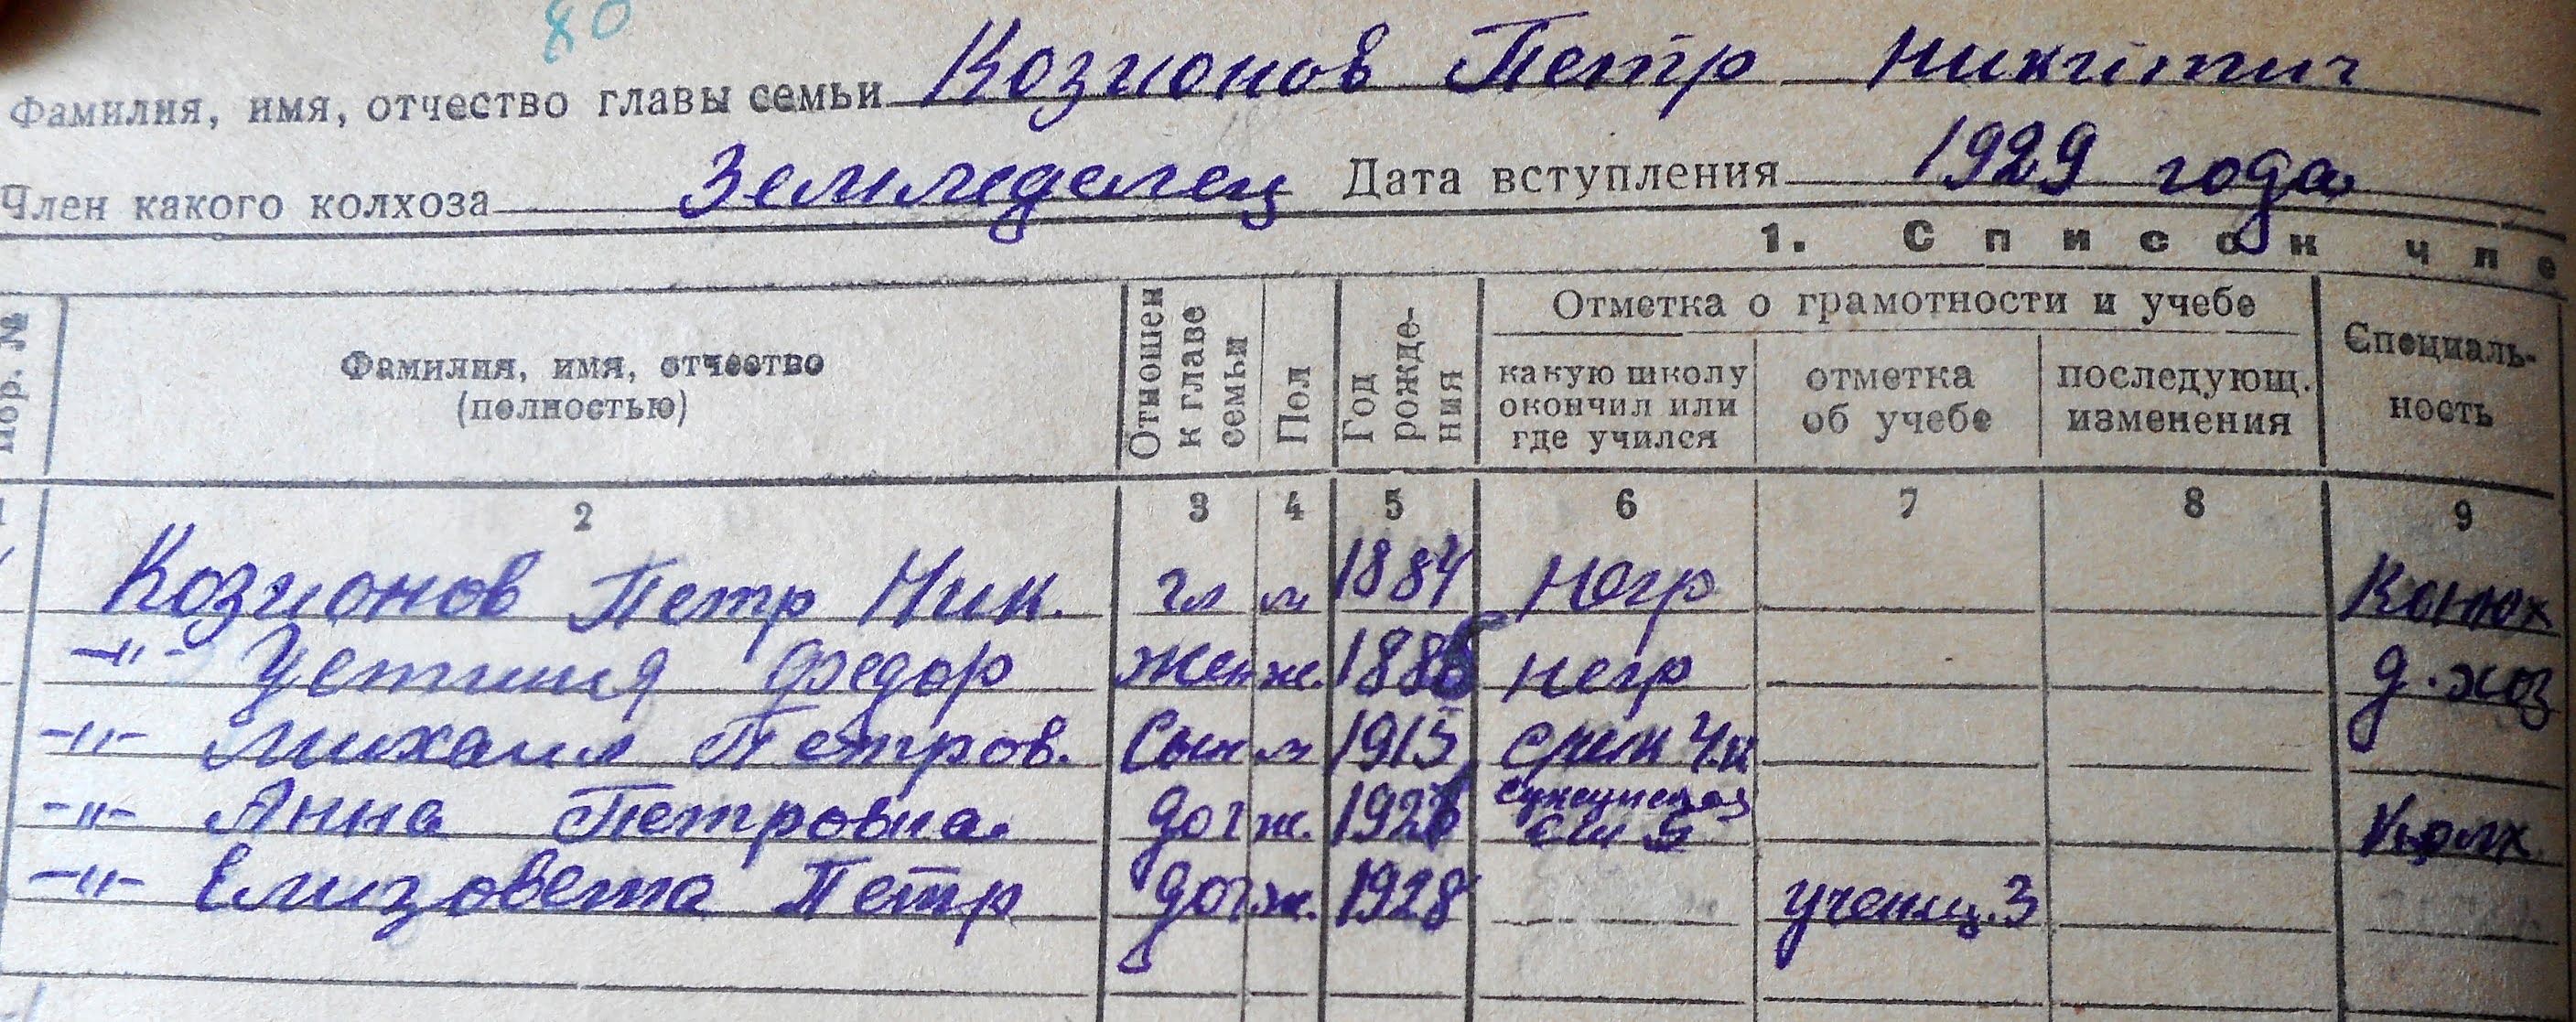 80
Фамилия, имя, отчество главы семьи Козионов Петр Никитич
Член какого колхоза Земледелец Дата вступления 1929 года
1. Список чле
Пор. №
Фамилия, имя, отчество (полностью)
Отношен к главе семьи
Пол
Год рожде-ния
Отметка о грамотности и учебе
какую школу окончил или где учился
отметка об учебе
последующ. изменения
Специаль-ность
1 2 3 4 5 6 7 8 9
Козионов Петр Ник. гл м 1884 негр Конюх
-"- Устиния Федор жен ж. 1886 негр д.хоз
-"- Михаил Петров. Сын м 1915
-"- Анна Петровна. доч ж. 1926 Колх
-"- Елизовета Петр доч ж. 1928 учениц.3